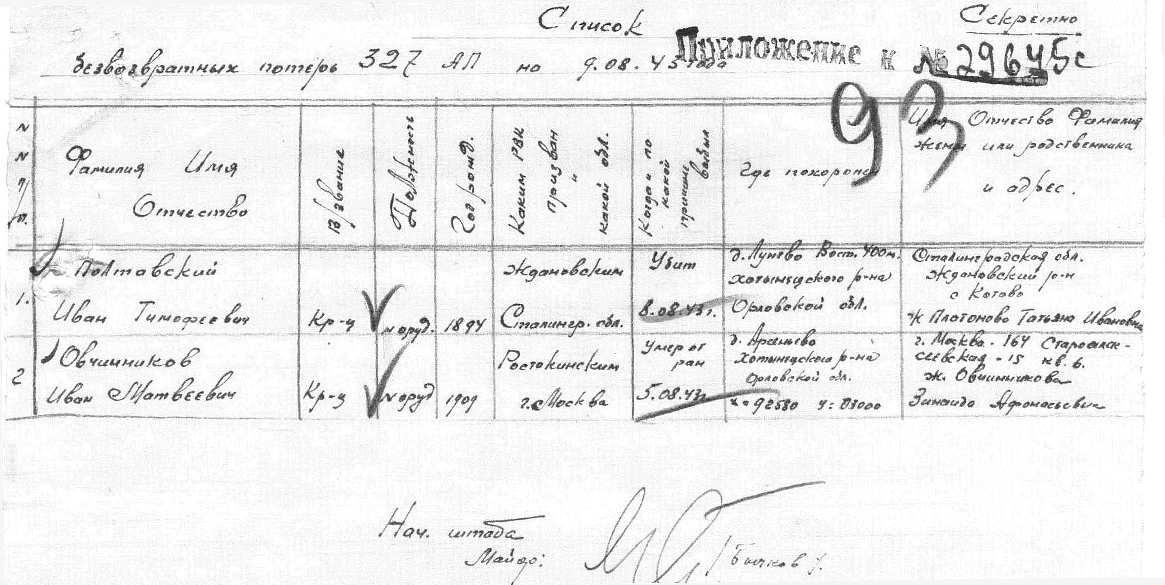 Список
Секретно
Приложение к № 29645с
безвозвратных потерь 327 АП на 9.08.43 года
93
№№ п/п.
Фамилия Имя
Отчество
В/звание
Должность
Год рожд.
Каким РВК
призван
и
какой обл.
Когда и по
какой
причине
выбыл
Где похоронен
Имя Отчество Фамилия
жены или родственника
и адрес.
1.
Полтавский
Иван Тимофеевич
Кр-ц
оруд.
1894
Ждановским
Сталингр. обл.
Убит
8.08.43г.
д. Лунево Вост. 400м.
Хотынецского р-на
Орловской обл.
Сталинградская обл.
Ждановский р-н
с Котово
ж Платоново Татьяна Ивановна
2
Овчинников
Иван Матвеевич
Кр-ц
оруд
1909
Ростокинским
г. Москва
Умер от
ран
5.08.43г
д. Арсеньево
Хотынецского р-на
Орловской обл.
х=92580 у=03000
г. Москва - 164 Староалек-
сеевская - 15 кв. 6.
ж. Овчинникова
Зинаида Афонасьевич
Нач. штаба
Майор:
/Бычков/